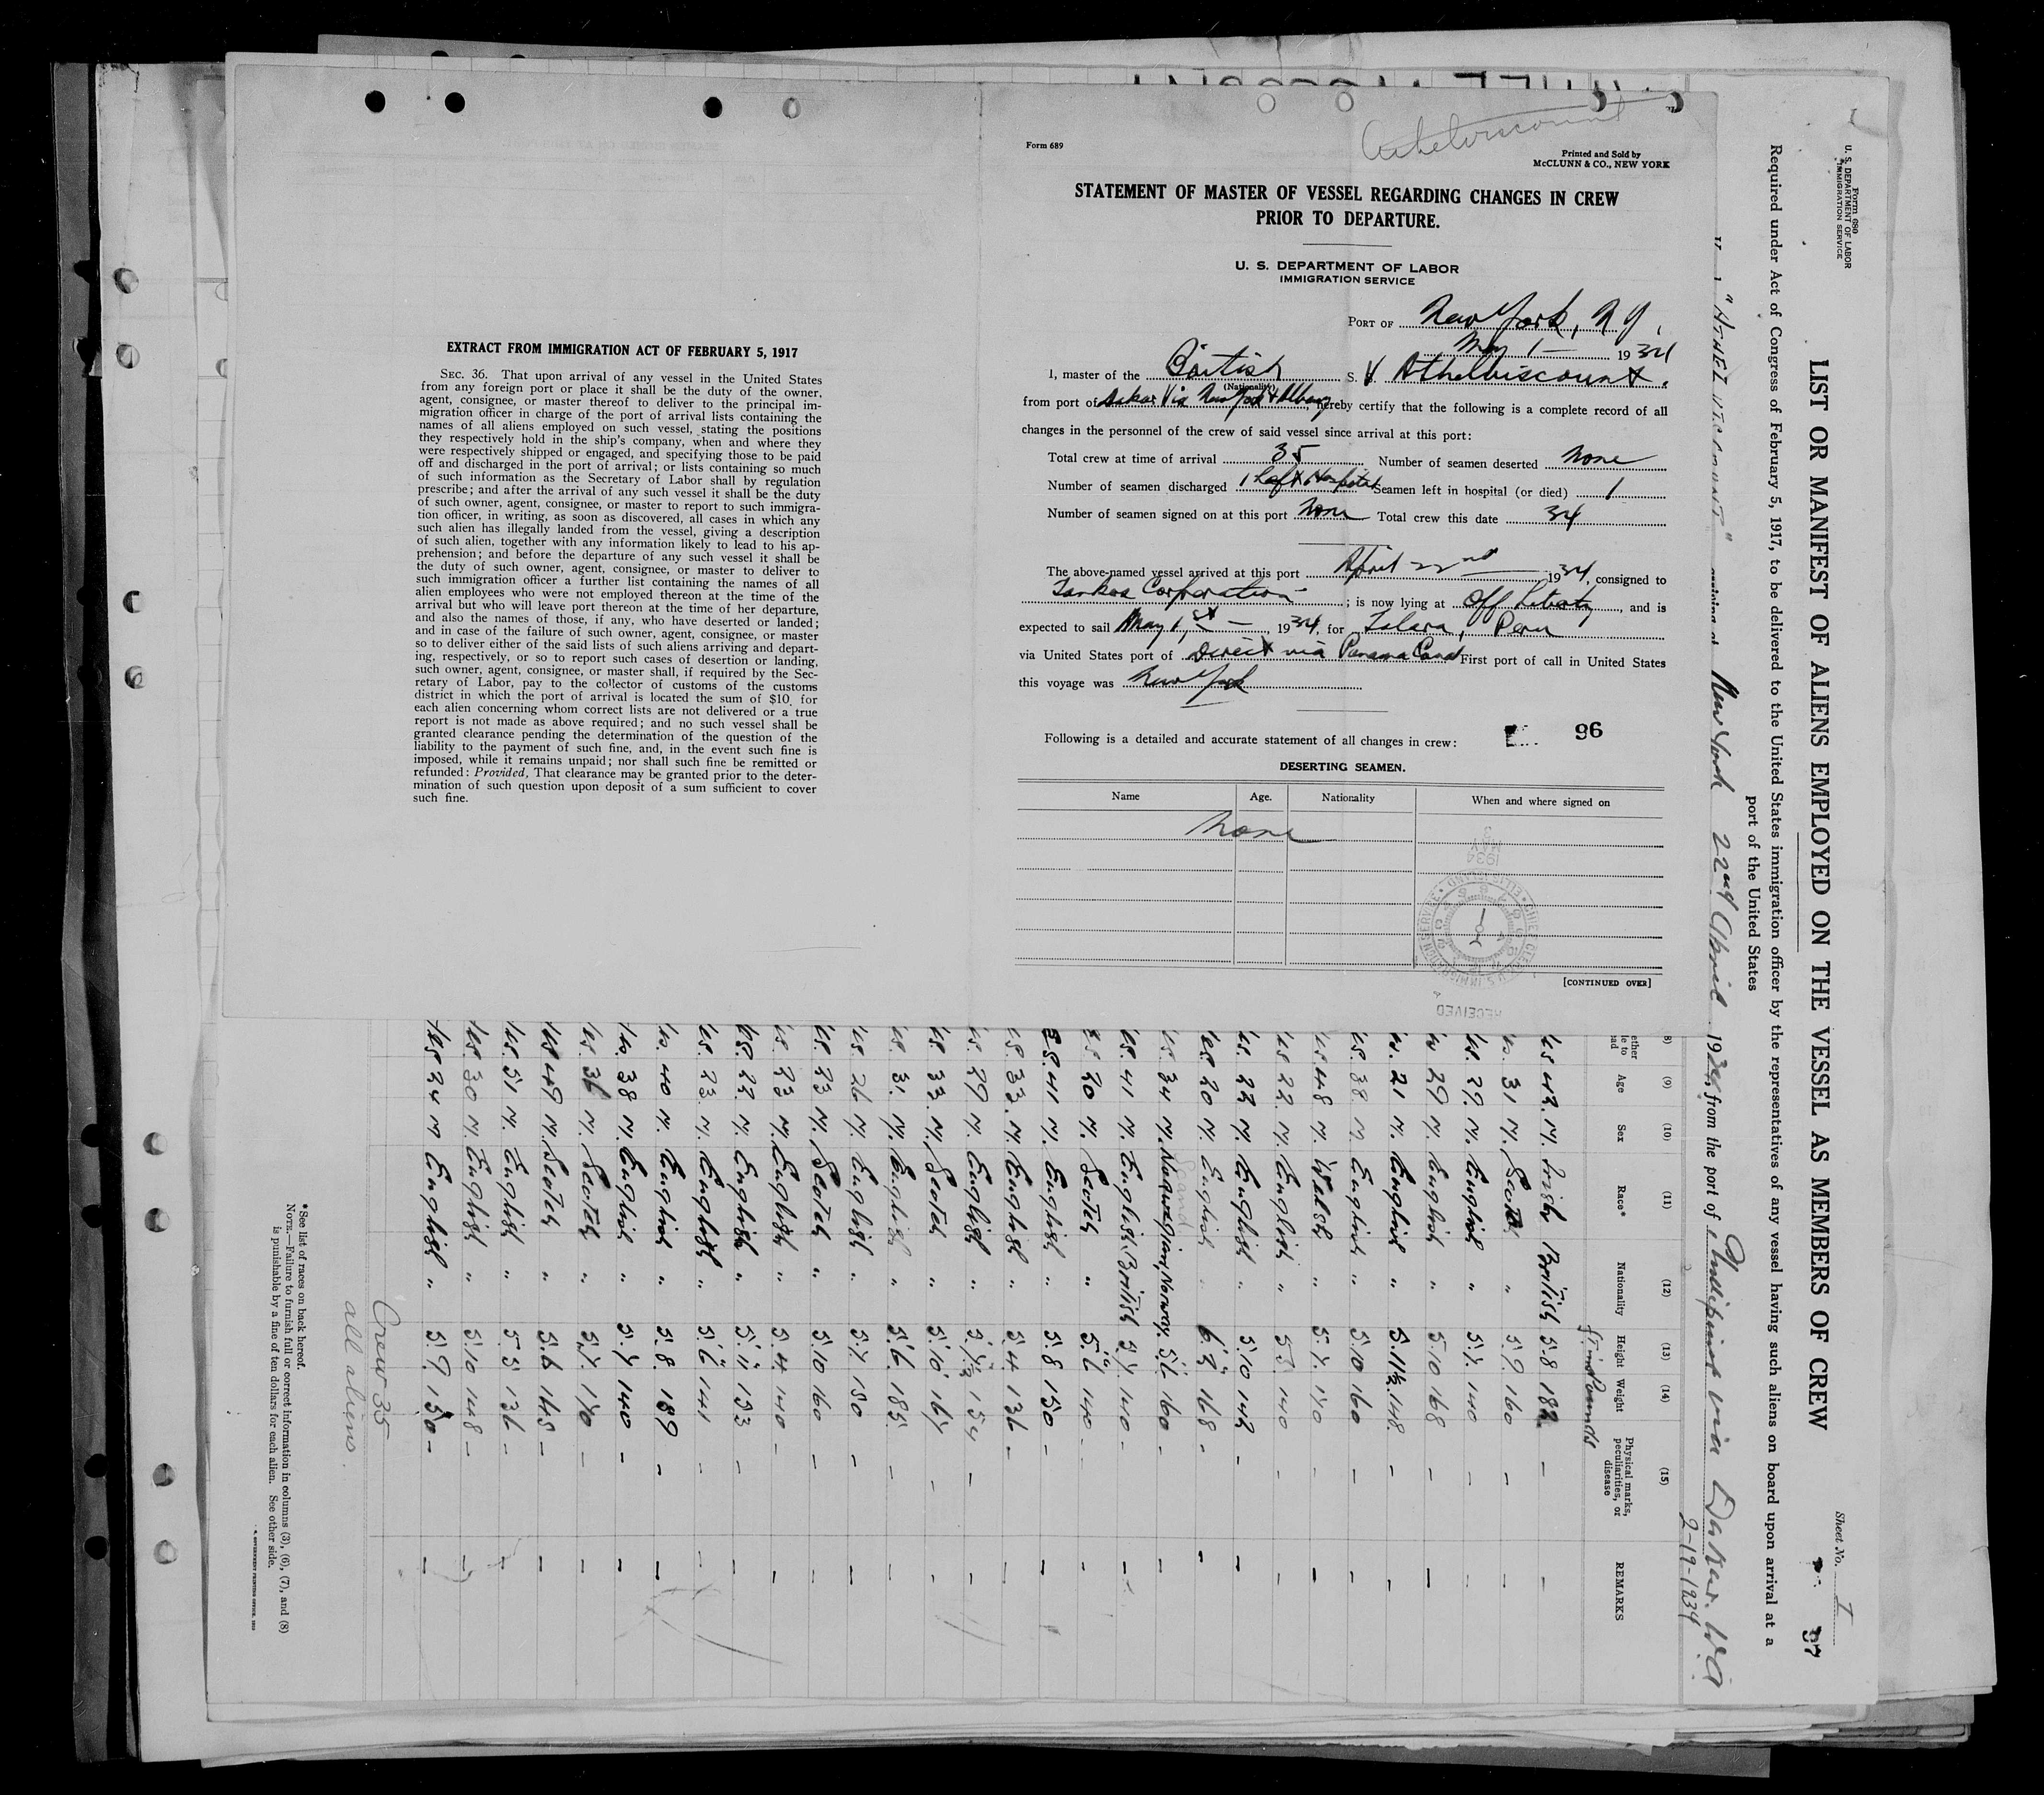 Athelviscount
Form 689
Printed and Sold by
McCLUNN & CO., NEW YORK
STATEMENT OF MASTER OF VESSEL REGARDING CHANGES IN CREW
PRIOR TO DEPARTURE.
U. S. DEPARTMENT OF LABOR
IMMIGRATION SERVICE
PORT OF New York, N Y.
May 1 — 1934
I, master of the British S. V Athelviscount.
(Nationality)
from port of Dakar Via New York & Albany, hereby certify that the following is a complete record of all
changes in the personnel of the crew of said vessel since arrival at this port:
Total crew at time of arrival 35 Number of seamen deserted None
Number of seamen discharged 1 Left Hospital Seamen left in hospital (or died) 1
Number of seamen signed on at this port None Total crew this date 34
The above-named vessel arrived at this port April 22nd 1934, consigned to
Corporation ; is now lying at Off Liberty, and is
expected to sail May 1st — , 1934, for Talara, Peru
via United States port of Direct via Panama Canal First port of call in United States
this voyage was New York
96
Following is a detailed and accurate statement of all changes in crew:
DESERTING SEAMEN.
Name Age. Nationality When and where signed on
None
[CONTINUED OVER]
RECEIVED
MAY 1934
EXTRACT FROM IMMIGRATION ACT OF FEBRUARY 5, 1917
SEC. 36. That upon arrival of any vessel in the United States
from any foreign port or place it shall be the duty of the owner,
agent, consignee, or master thereof to deliver to the principal im-
migration officer in charge of the port of arrival lists containing the
names of all aliens employed on such vessel, stating the positions
they respectively hold in the ship's company, when and where they
were respectively shipped or engaged, and specifying those to be paid
off and discharged in the port of arrival; or lists containing so much
of such information as the Secretary of Labor shall by regulation
prescribe; and after the arrival of any such vessel it shall be the duty
of such owner, agent, consignee, or master to report to such immigra-
tion officer, in writing, as soon as discovered, all cases in which any
such alien has illegally landed from the vessel, giving a description
of such alien, together with any information likely to lead to his ap-
prehension; and before the departure of any such vessel it shall be
the duty of such owner, agent, consignee, or master to deliver to
such immigration officer a further list containing the names of all
alien employees who were not employed thereon at the time of the
arrival but who will leave port thereon at the time of her departure,
and also the names of those, if any, who have deserted or landed;
and in case of the failure of such owner, agent, consignee, or master
so to deliver either of the said lists of such aliens arriving and depart-
ing, respectively, or so to report such cases of desertion or landing,
such owner, agent, consignee, or master shall, if required by the Sec-
retary of Labor, pay to the collector of customs of the customs
district in which the port of arrival is located the sum of $10 for
each alien concerning whom correct lists are not delivered or a true
report is not made as above required; and no such vessel shall be
granted clearance pending the determination of the question of the
liability to the payment of such fine, and, in the event such fine is
imposed, while it remains unpaid; nor shall such fine be remitted or
refunded: Provided, That clearance may be granted prior to the deter-
mination of such question upon deposit of a sum sufficient to cover
such fine.
Form 680
U. S. DEPARTMENT OF LABOR
IMMIGRATION SERVICE
Sheet No. I
97
LIST OR MANIFEST OF ALIENS EMPLOYED ON THE VESSEL AS MEMBERS OF CREW
Required under Act of Congress of February 5, 1917, to be delivered to the United States immigration officer by the representatives of any vessel having such aliens on board upon arrival at a
port of the United States
"ATHELVISCOUNT" arriving at New York 22nd April 1934, from the port of via Dakar. W.A.
2-19-1934
(9) (10) (11) (12) (13) (14) (15)
Age Sex Race* Nationality Height Weight Physical marks, peculiarities, or disease REMARKS
Pounds
42 M. Irish British 5.8 182 - -
31 M. Scotch " 5.9 160 - -
29 M. English " 5.7 140 - -
29 M. English " 5.10 168 - -
21 M. English " 5.11½ 148 - -
38 M. English " 5.10 160 - -
48 M. Welsh " 5.7 170 - -
22 M. English " 5.5 140 - -
22 M. English " 5.10 142 - -
20 M. English " 6.2 168 - -
34 M. Norwegian, Norway. 160 - -
41 M. English British 5.7 140 - -
20 M. Scotch " 5.6 140 - -
41 M. English " 5.8 150 - -
33 M. English " 5.4 136 - -
29 M. English " 5.7½ 154 - -
33 M. Scotch " 5.10 164 - -
31 M. English " 5.6 185 - -
26 M. English " 5.7 150 - -
23 M. Scotch " 5.10 160 - -
23 M. English " 5.4 140 - -
22 M. English " 5.11 133 - -
23 M. English " 5.6 141 - -
40 M. English " 5.8 189 - -
38 M. English " 5.7 140 - -
36 M. Scotch " 5.7 170 - -
49 M. Scotch " 5.6 145 - -
51 M. English " 5.5 136 - -
30 M. English " 5.10 148 - -
24 M English " 5.9 150 - -
Crew 35
all aliens.
*See list of races on back hereof.
NOTE.—Failure to furnish full or correct information in columns (3), (6), (7), and (8)
is punishable by a fine of ten dollars for each alien. See other side.